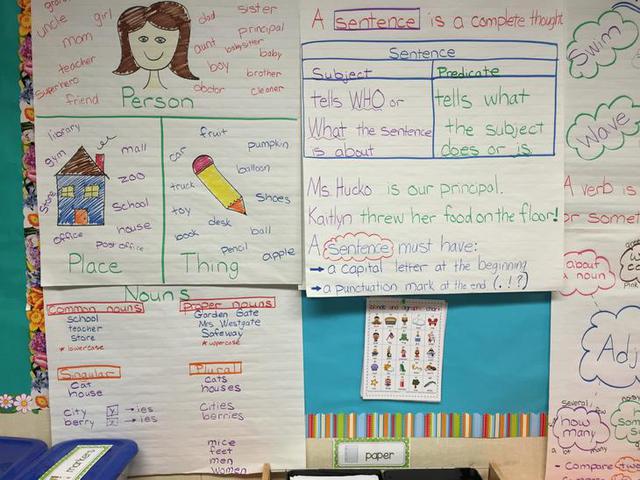 uncle
girl
dad
sister
mom
aunt
principal
babysitter
baby
teacher
boy
brother
superhero
friend
doctor
cleaner
Person
library
gym
mall
zoo
store
school
house
office
post office
Place
fruit
car
pumpkin
balloon
truck
shoes
toy
desk
book
ball
pencil
apple
Thing
Nouns
Common nouns
school
teacher
store
* lowercase
Proper nouns
Garden Gate
Mrs. Westgate
Safeway
* uppercase
Singular
cat
house
city y → ies
berry y → ies
Plural
cats
houses
cities
berries
mice
feet
men
women
A sentence is a complete thought
Sentence
Subject
Predicate
tells WHO or
What the sentence
is about
tells what
the subject
does or is
Ms. Hucko is our principal.
Kaitlyn threw her food on the floor!
A sentence must have:
→ a capital letter at the beginning
→ a punctuation mark at the end (. ! ?)
Swim
Wave
A verb is
or some
about
a noun
Adj
Several
few
how
many
a lot
many
- Compare
- Compare
markers
paper